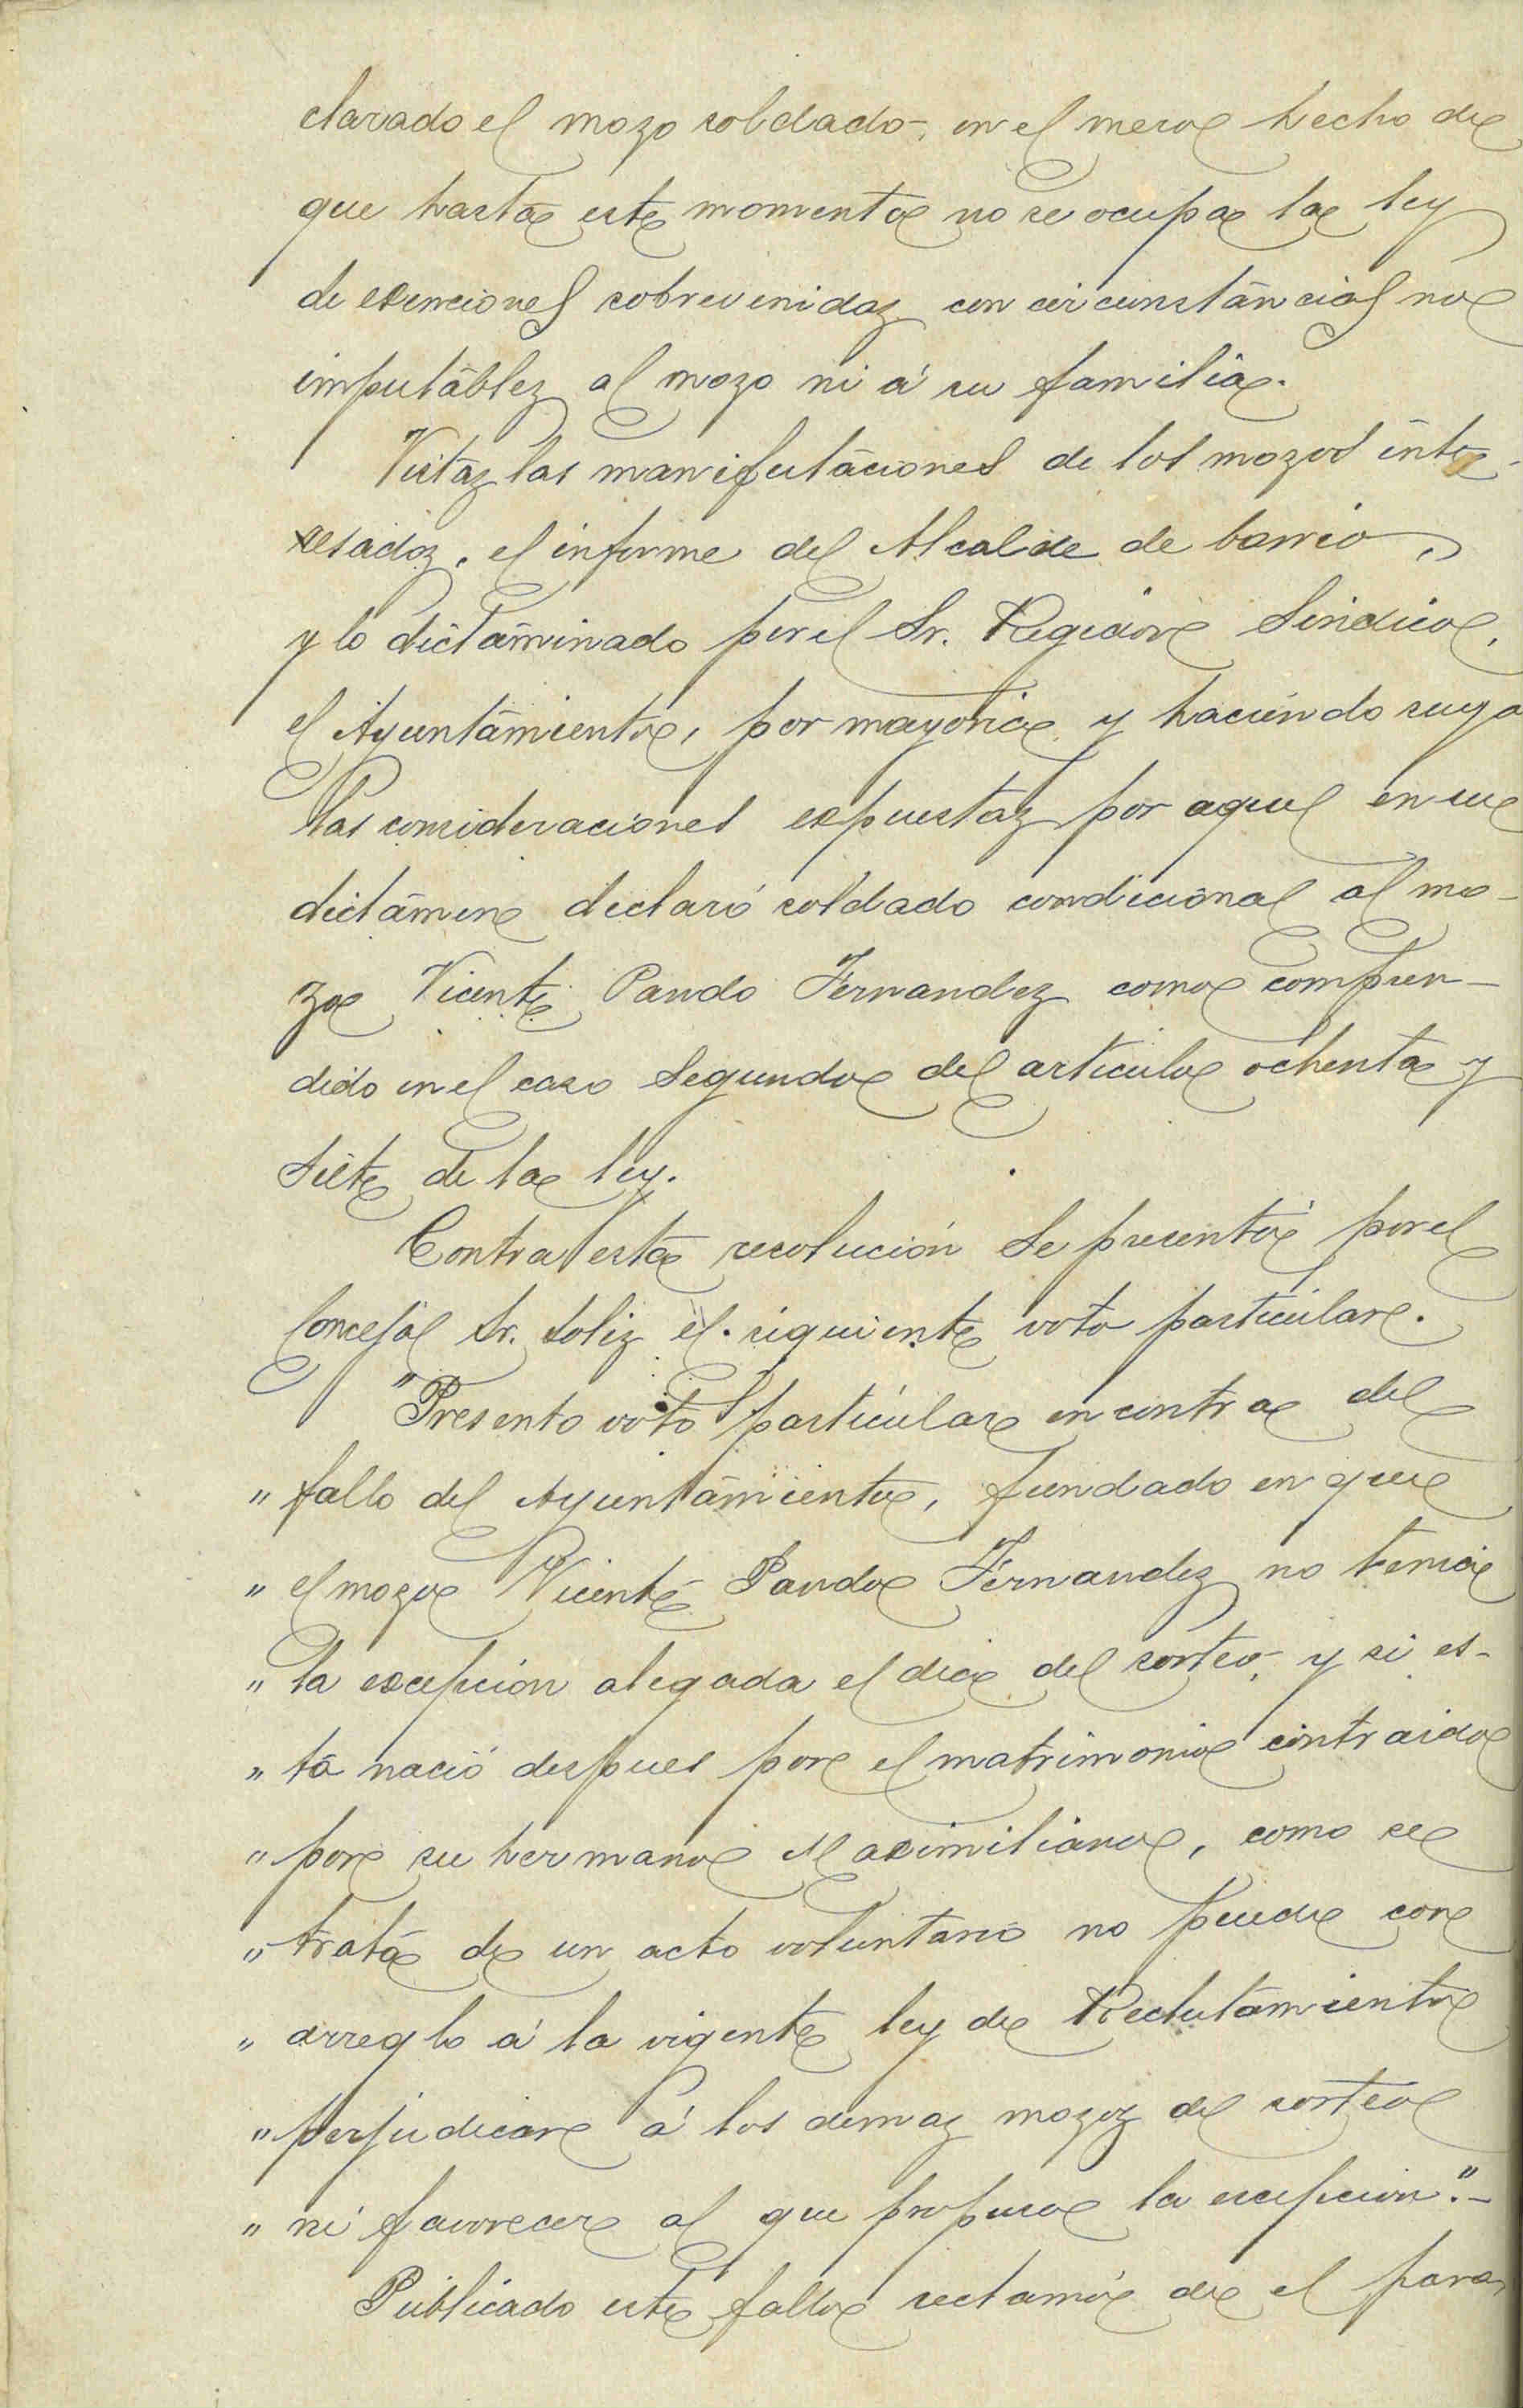 clarado el mozo soldado, en el mero hecho de
que hasta este momento no se ocupa la ley
de exenciones sobrevenidas con circunstancias no
imputables al mozo ni á su familia.
Vistas las manifestaciones de los mozos inte-
resados, el informe del Alcalde de barrio,
y lo dictaminado por el Sr. Regidor Sindico,
el Ayuntamiento, por mayoria y haciendo suya
las consideraciones expuestas por aquel en su
dictámen declaró soldado condicional al mo-
zo Vicente Pando Fernandez como compren-
dido en el caso segundo del articulo ochenta y
siete de la ley.
Contra esta resolución se presentó por el
Concejal Sr. Soliz el siguiente voto particular.
"Presento voto particular en contra del
" fallo del Ayuntamiento, fundado en que
" el mozo Vicente Pando Fernandez no tenia
" la excepción alegada el dia del sorteo, y si es-
" ta nació despues por el matrimonio contraido
" por su hermano Maximiliano, como se
" trata de un acto voluntario no puede con
" arreglo á la vigente ley de Reclutamiento
" perjudicar á los demas mozos del sorteo
" ni favorecer al que propuso la escepcion."-
Publicado este fallo reclamó de el para